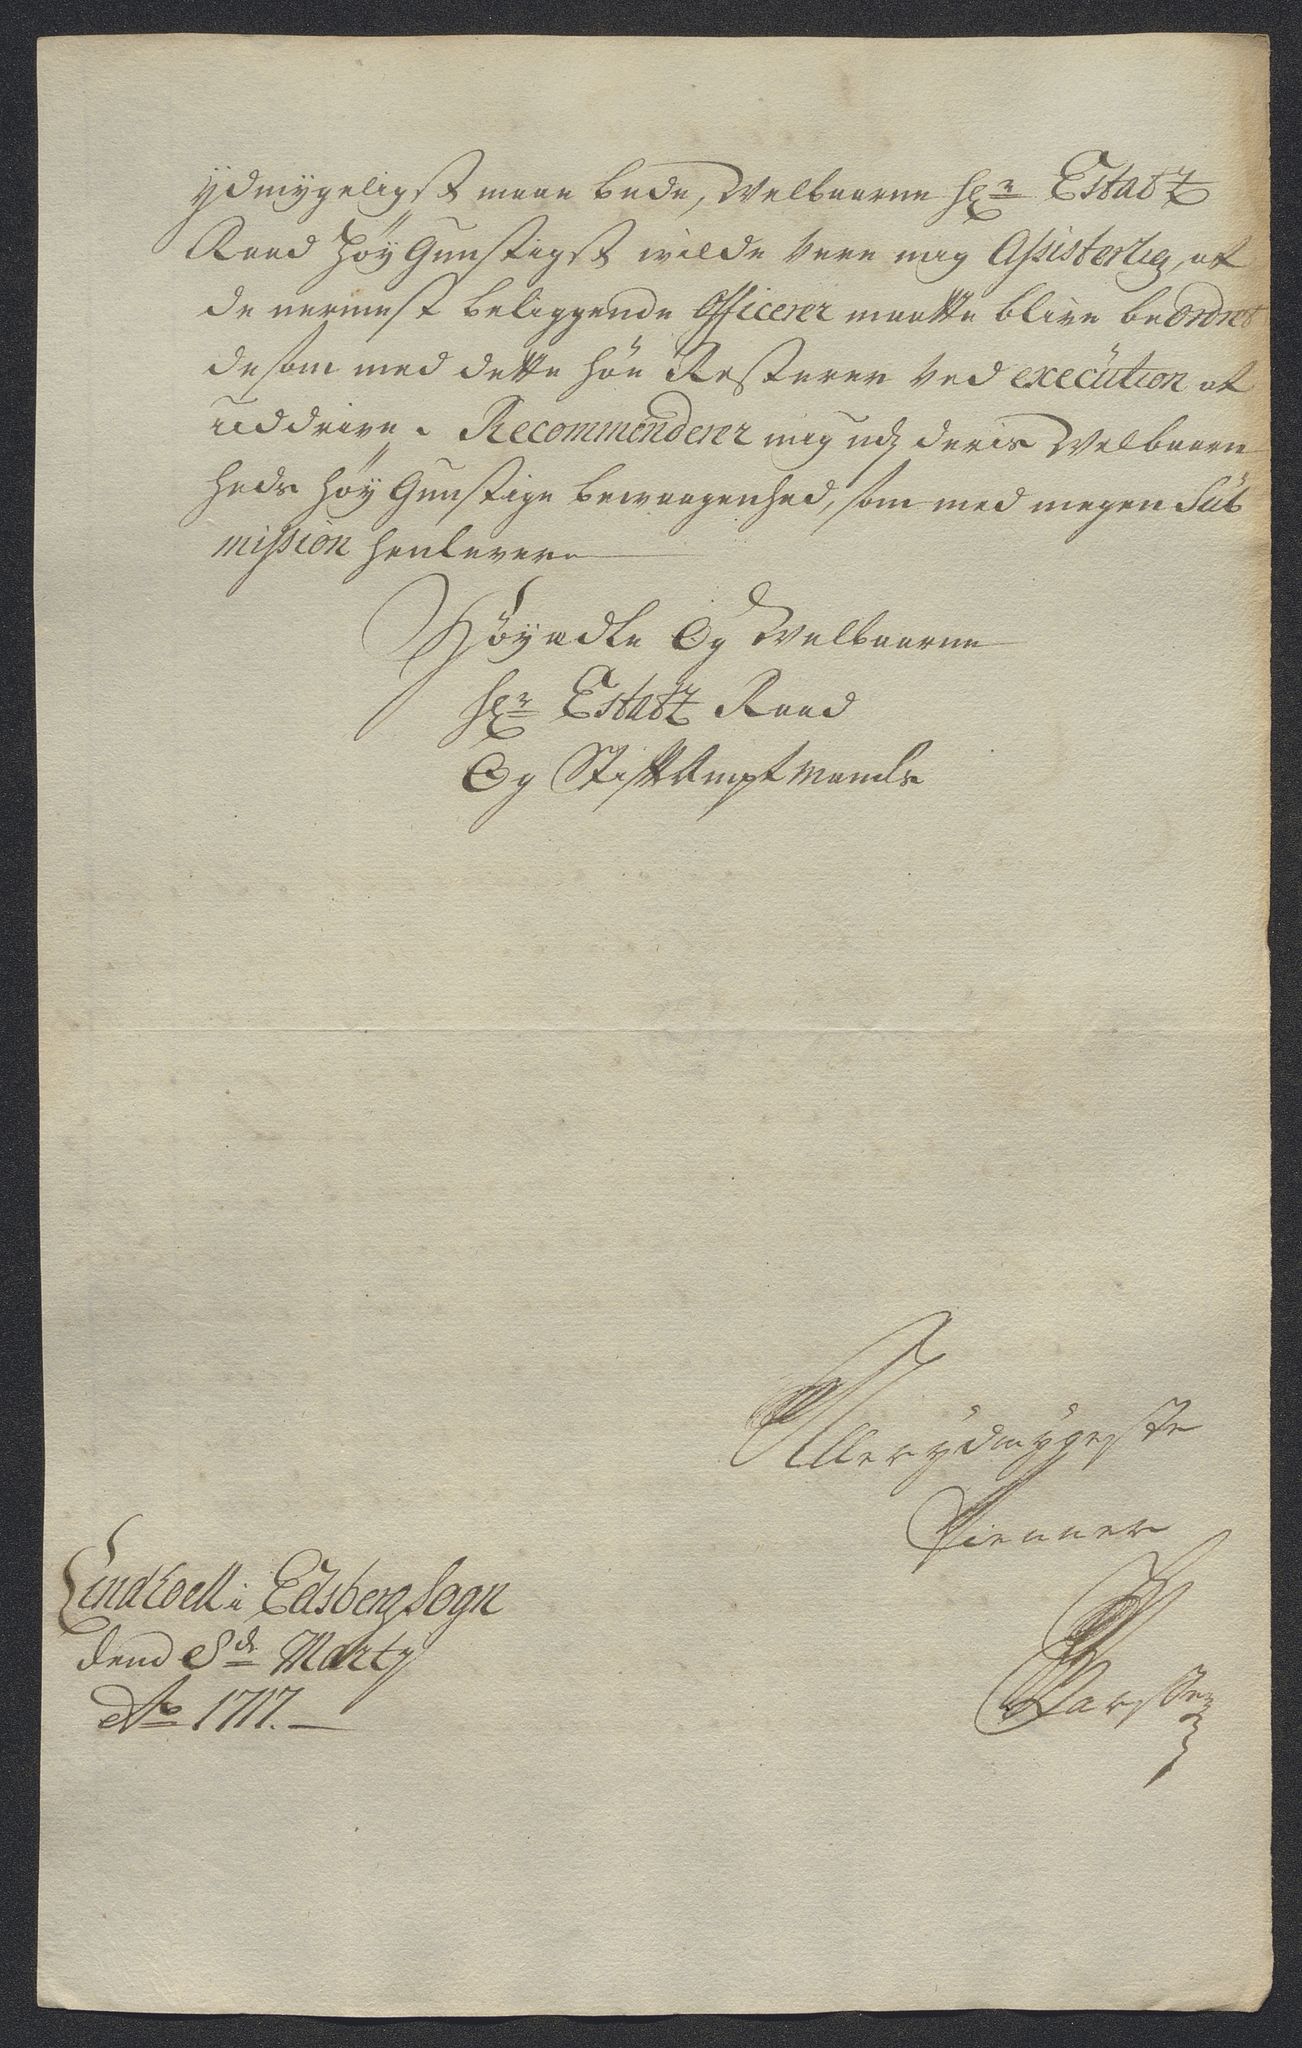 ydmygeligst maae bede, Welbaarne Hr Estatz
Raad Høy Gunstigst wilde vere mig Assisterlig, at
de nermest beliggende Officerer maatte blive beordret
de som med dette hön Resterer ved execution at
uddrive. Recommenderer mig udj deris Welbaarn
heds høy Gunstige bewaagenhed, som med megen Sub
mission henlever
Høyædle Og Welbaarne
Hr Estatz Raad
Og Stiftamptmands
Allerydmygeste
Tienner
Lindhoell i Edsberg Sogn
dend 8de Marty
Ao 1717.